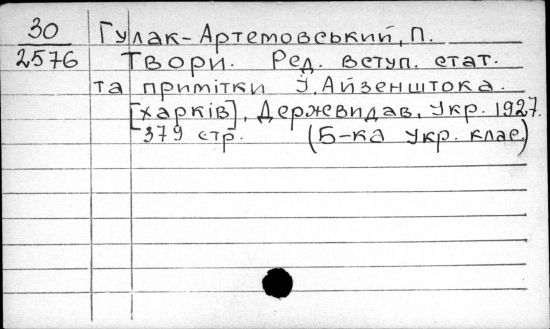 30
2576
Гулак-Артемовський, П.
Твори. Ред. вступ. стат.
та примітки І. Айзенштока.
[Харків], Держвидав, Укр. 1927.
379 стр. (Б-ка Укр. клас.)